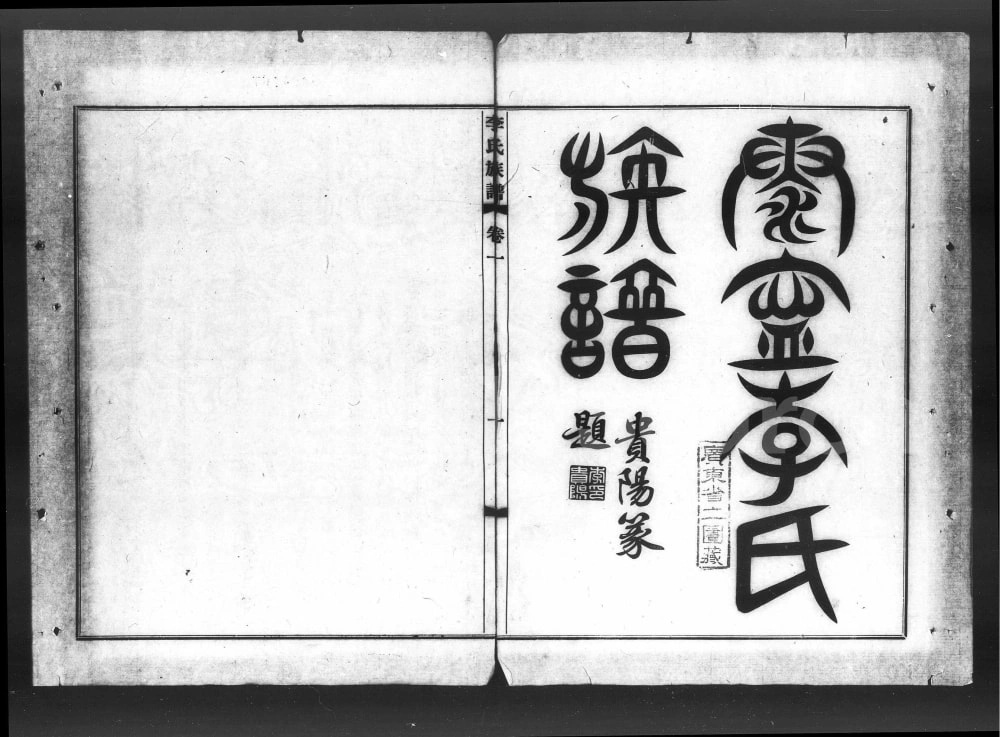 寧李氏
族譜
貴陽篆
題
李印
貴陽
廣東省立圖藏
李氏族譜 卷一 一